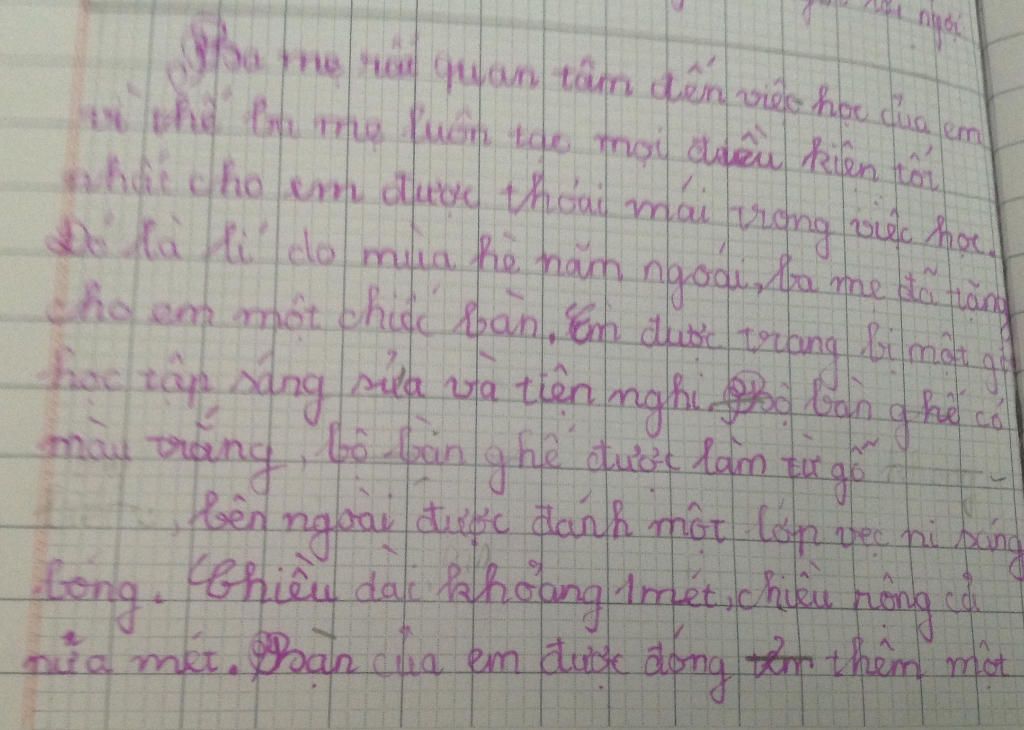 ngoi
Ba mẹ rất quan tâm đến việc học của em
vì thế ba mẹ luôn tạo mọi điều kiện tốt
nhất cho em được thoải mái trong việc học.
Đó là lí do mùa hè năm ngoái, ba mẹ đã tặng
cho em một chiếc bàn. Em được trang bị một gó
học tập sáng sủa và tiện nghi. Bộ bàn ghế có
màu trắng, bộ bàn ghế được làm từ gỗ
bên ngoài được đánh một lớp vẹc ni sáng
bóng. Chiều dài khoảng 1 mét, chiều rộng cỡ
nửa mét. Bàn của em được đóng thêm một